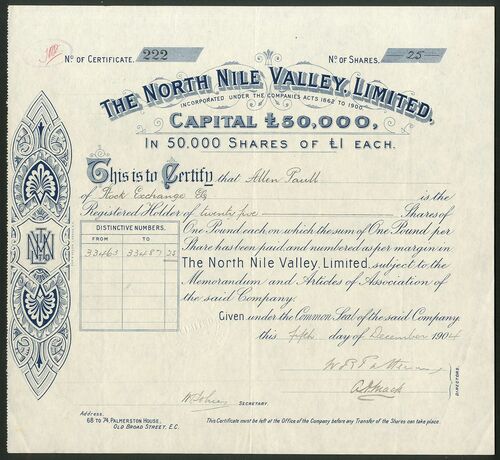 No. OF CERTIFICATE. 222 No. OF SHARES. 25
THE NORTH NILE VALLEY, LIMITED,
INCORPORATED UNDER THE COMPANIES ACTS 1862 TO 1900.
CAPITAL £50,000,
IN 50,000 SHARES OF £1 EACH.
This is to Certify that Allen Taull
of Stock Exchange is the
Registered Holder of twenty five Shares of
DISTINCTIVE NUMBERS.
FROM TO
33463 33487 25
One Pound each, on which the sum of One Pound per
Share has been paid, and numbered as per margin in
The North Nile Valley, Limited, subject to the
Memorandum and Articles of Association of
the said Company.
Given under the Common Seal of the said Company,
this fifth day of December 1904
DIRECTORS.
SECRETARY.
Address.
68 TO 74, PALMERSTON HOUSE,
OLD BROAD STREET, E.C.
This Certificate must be left at the Office of the Company before any Transfer of the Shares can take place.